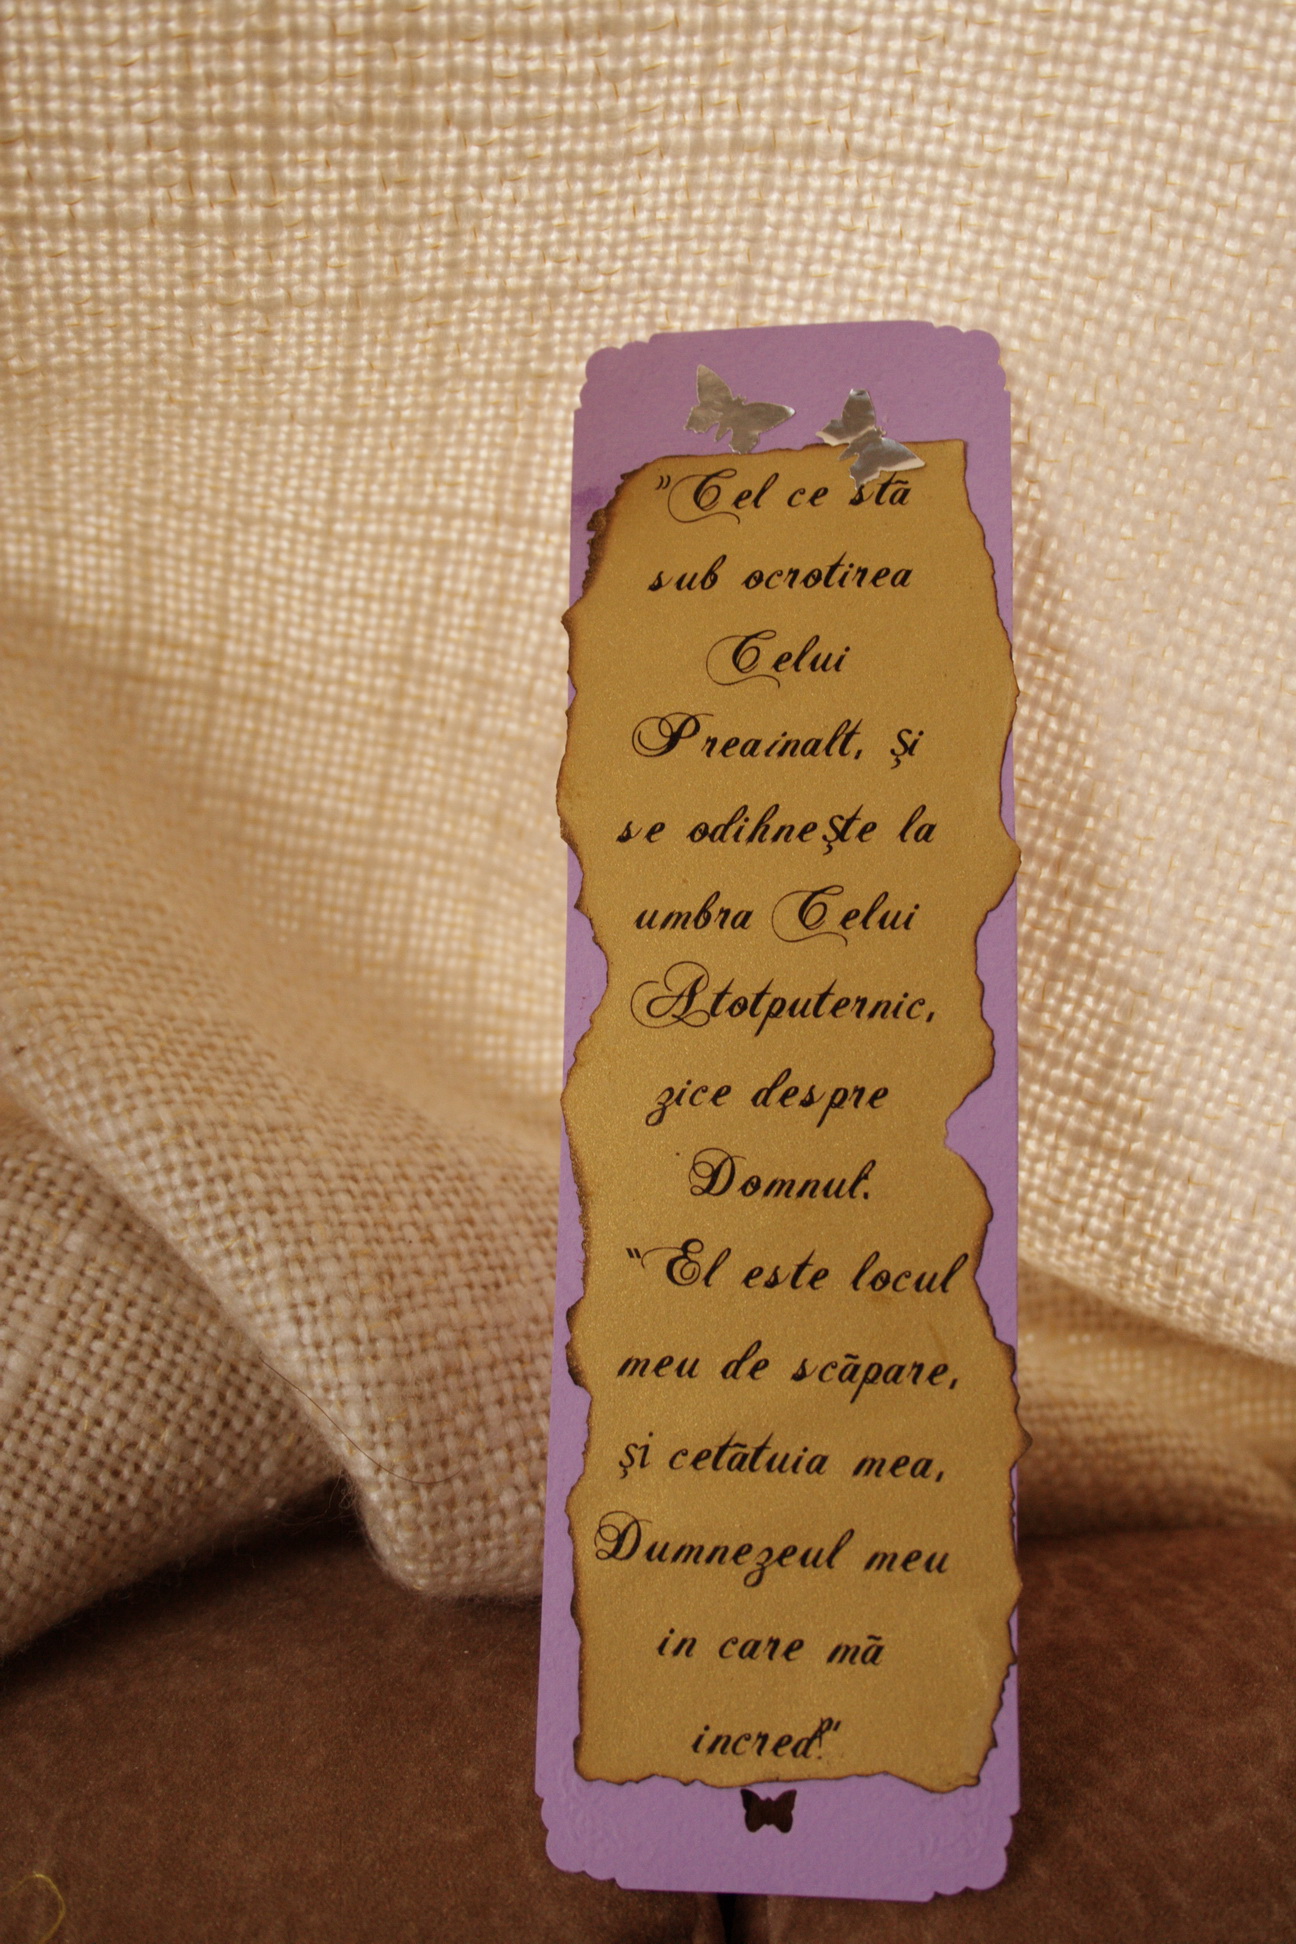 "Cel ce stã
sub ocrotirea
Celui
Preainalt, şi
se odihneşte la
umbra Celui
Atotputernic,
zice despre
Domnul:
“El este locul
meu de scãpare,
şi cetãtuia mea,
Dumnezeul meu
in care mã
incred!"